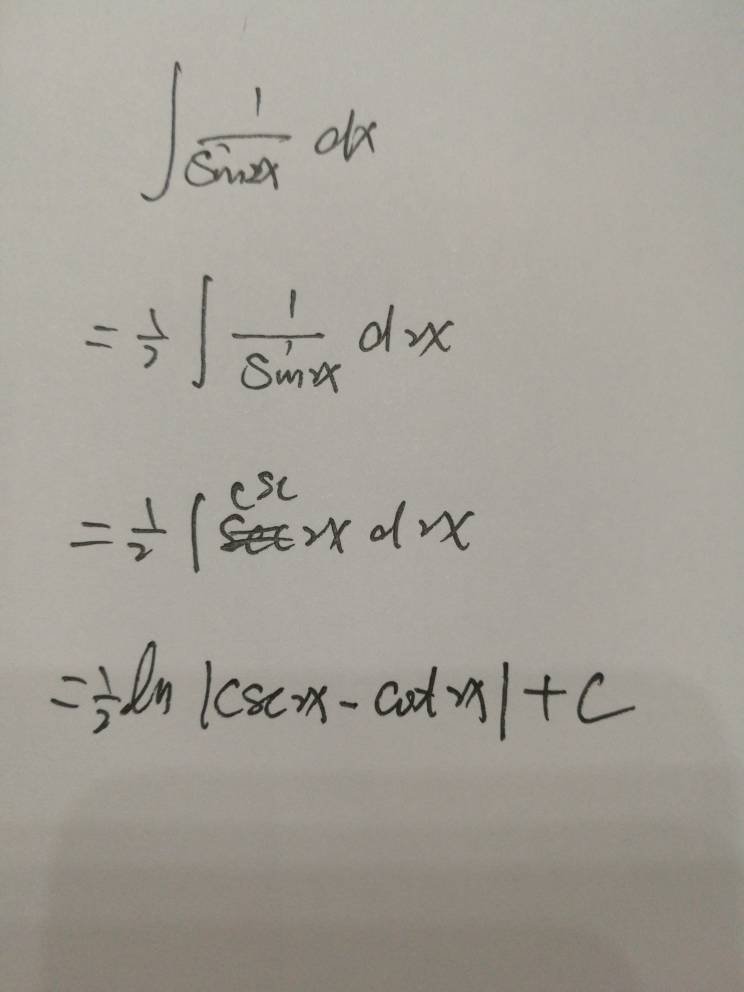 ∫ 1/sin2x dx
= 1/2 ∫ 1/sin2x d2x
= 1/2 ∫ csc2x d2x
= 1/2 ln |csc2x - cot2x| + C